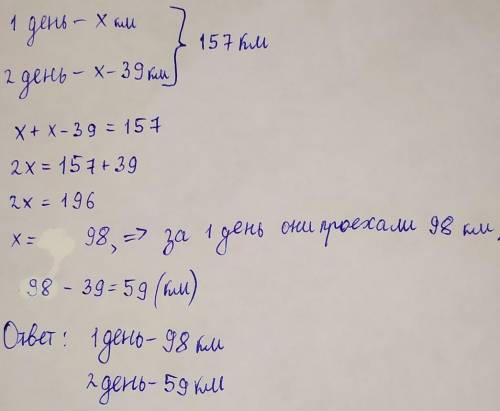 1 день – x км
157 км
2 день – x – 39 км
x + x – 39 = 157
2x = 157 + 39
2x = 196
x = 98, => за 1 день они проехали 98 км,
98 – 39 = 59 (км)
Ответ: 1 день – 98 км
2 день – 59 км